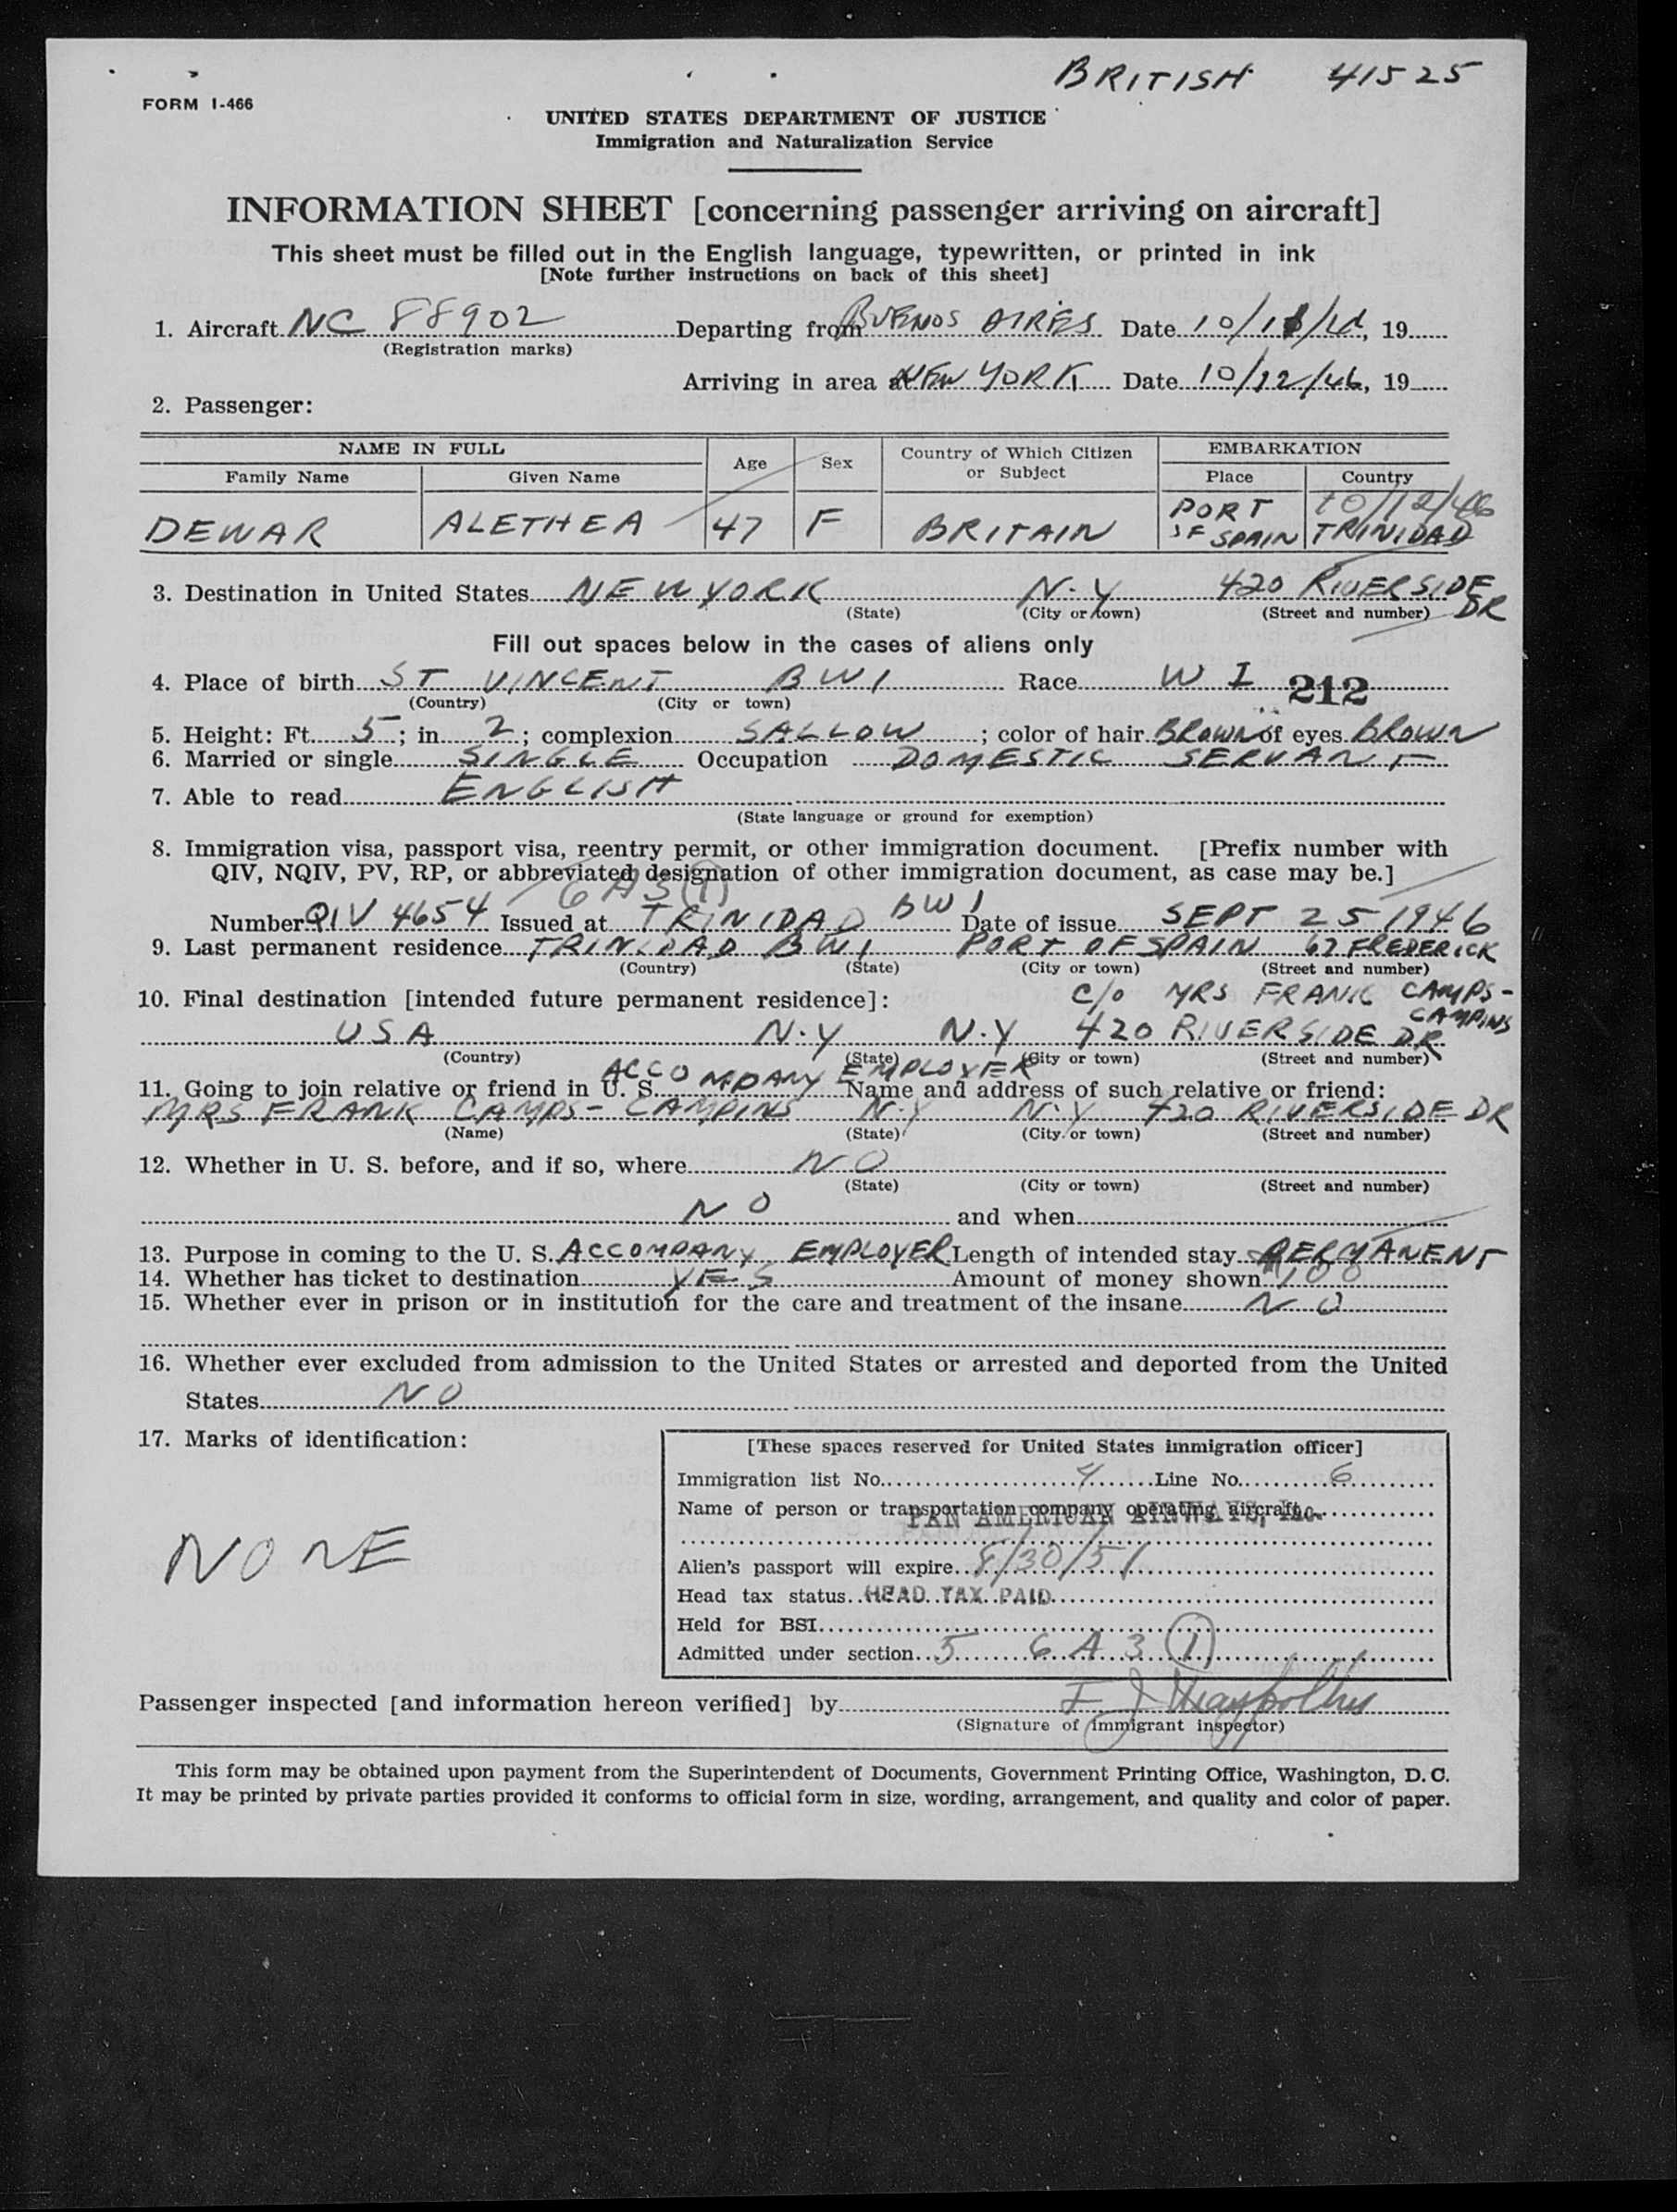 BRITISH 41525
FORM I-466
UNITED STATES DEPARTMENT OF JUSTICE
Immigration and Naturalization Service
INFORMATION SHEET [concerning passenger arriving on aircraft]
This sheet must be filled out in the English language, typewritten, or printed in ink
[Note further instructions on back of this sheet]
1. Aircraft NC 88902 Departing from BUENOS AIRES Date 10/ , 19
(Registration marks)
Arriving in area NEW YORK Date 10/12/46, 19
2. Passenger:
NAME IN FULL Age Sex Country of Which Citizen or Subject EMBARKATION
Family Name Given Name Place Country
10/12/46
DEWAR ALETHEA 47 F BRITAIN PORT OF SPAIN TRINIDAD
3. Destination in United States NEW YORK N.Y 420 RIVERSIDE DR
(State) (City or town) (Street and number)
Fill out spaces below in the cases of aliens only
4. Place of birth ST VINCENT BWI Race W I 212
(Country) (City or town)
5. Height: Ft. 5; in. 2; complexion SALLOW; color of hair BROWN of eyes BROWN
6. Married or single SINGLE Occupation DOMESTIC SERVANT
7. Able to read ENGLISH
(State language or ground for exemption)
8. Immigration visa, passport visa, reentry permit, or other immigration document. [Prefix number with
QIV, NQIV, PV, RP, or abbreviated designation of other immigration document, as case may be.]
6 A 3 (1)
Number QIV 4654 Issued at TRINIDAD BWI Date of issue SEPT 25 1946
9. Last permanent residence TRINIDAD BWI PORT OF SPAIN 67 FREDERICK
(Country) (State) (City or town) (Street and number)
10. Final destination [intended future permanent residence]: C/o MRS FRANK CAMPS-CAMPINS
USA N.Y N.Y 420 RIVERSIDE DR
(Country) (State) (City or town) (Street and number)
11. Going to join relative or friend in U. S. ACCOMPANY EMPLOYER Name and address of such relative or friend:
MRS FRANK CAMPS-CAMPINS N.Y N.Y 420 RIVERSIDE DR
(Name) (State) (City or town) (Street and number)
12. Whether in U. S. before, and if so, where NO
(State) (City or town) (Street and number)
NO and when
13. Purpose in coming to the U. S. ACCOMPANY EMPLOYER Length of intended stay PERMANENT
14. Whether has ticket to destination YES Amount of money shown 100
15. Whether ever in prison or in institution for the care and treatment of the insane NO
16. Whether ever excluded from admission to the United States or arrested and deported from the United
States NO
17. Marks of identification:
NONE
[These spaces reserved for United States immigration officer]
Immigration list No. 4 Line No. 6
Name of person or transportation company operating aircraft
PAN AMERICAN AIRWAYS, Inc.
Alien's passport will expire 8/30/51
Head tax status HEAD TAX PAID
Held for BSI
Admitted under section 5 6 A 3 (1)
Passenger inspected [and information hereon verified] by F J
(Signature of immigrant inspector)
This form may be obtained upon payment from the Superintendent of Documents, Government Printing Office, Washington, D. C.
It may be printed by private parties provided it conforms to official form in size, wording, arrangement, and quality and color of paper.